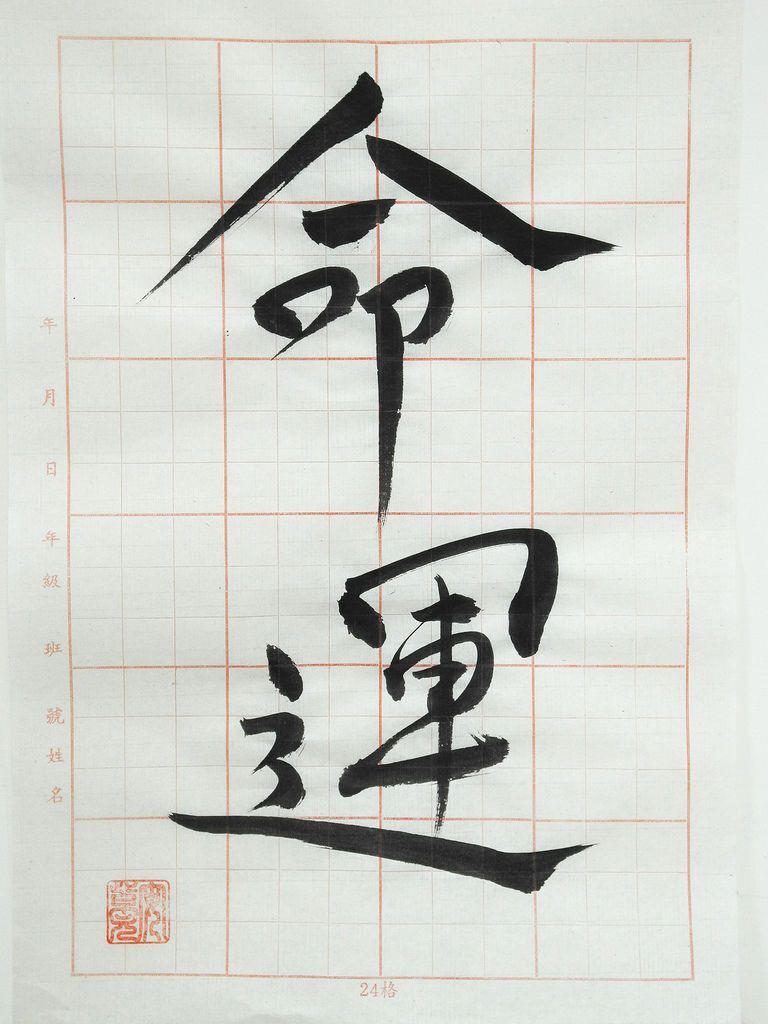 命運
年 月 日 年級 班 號 姓名
24格